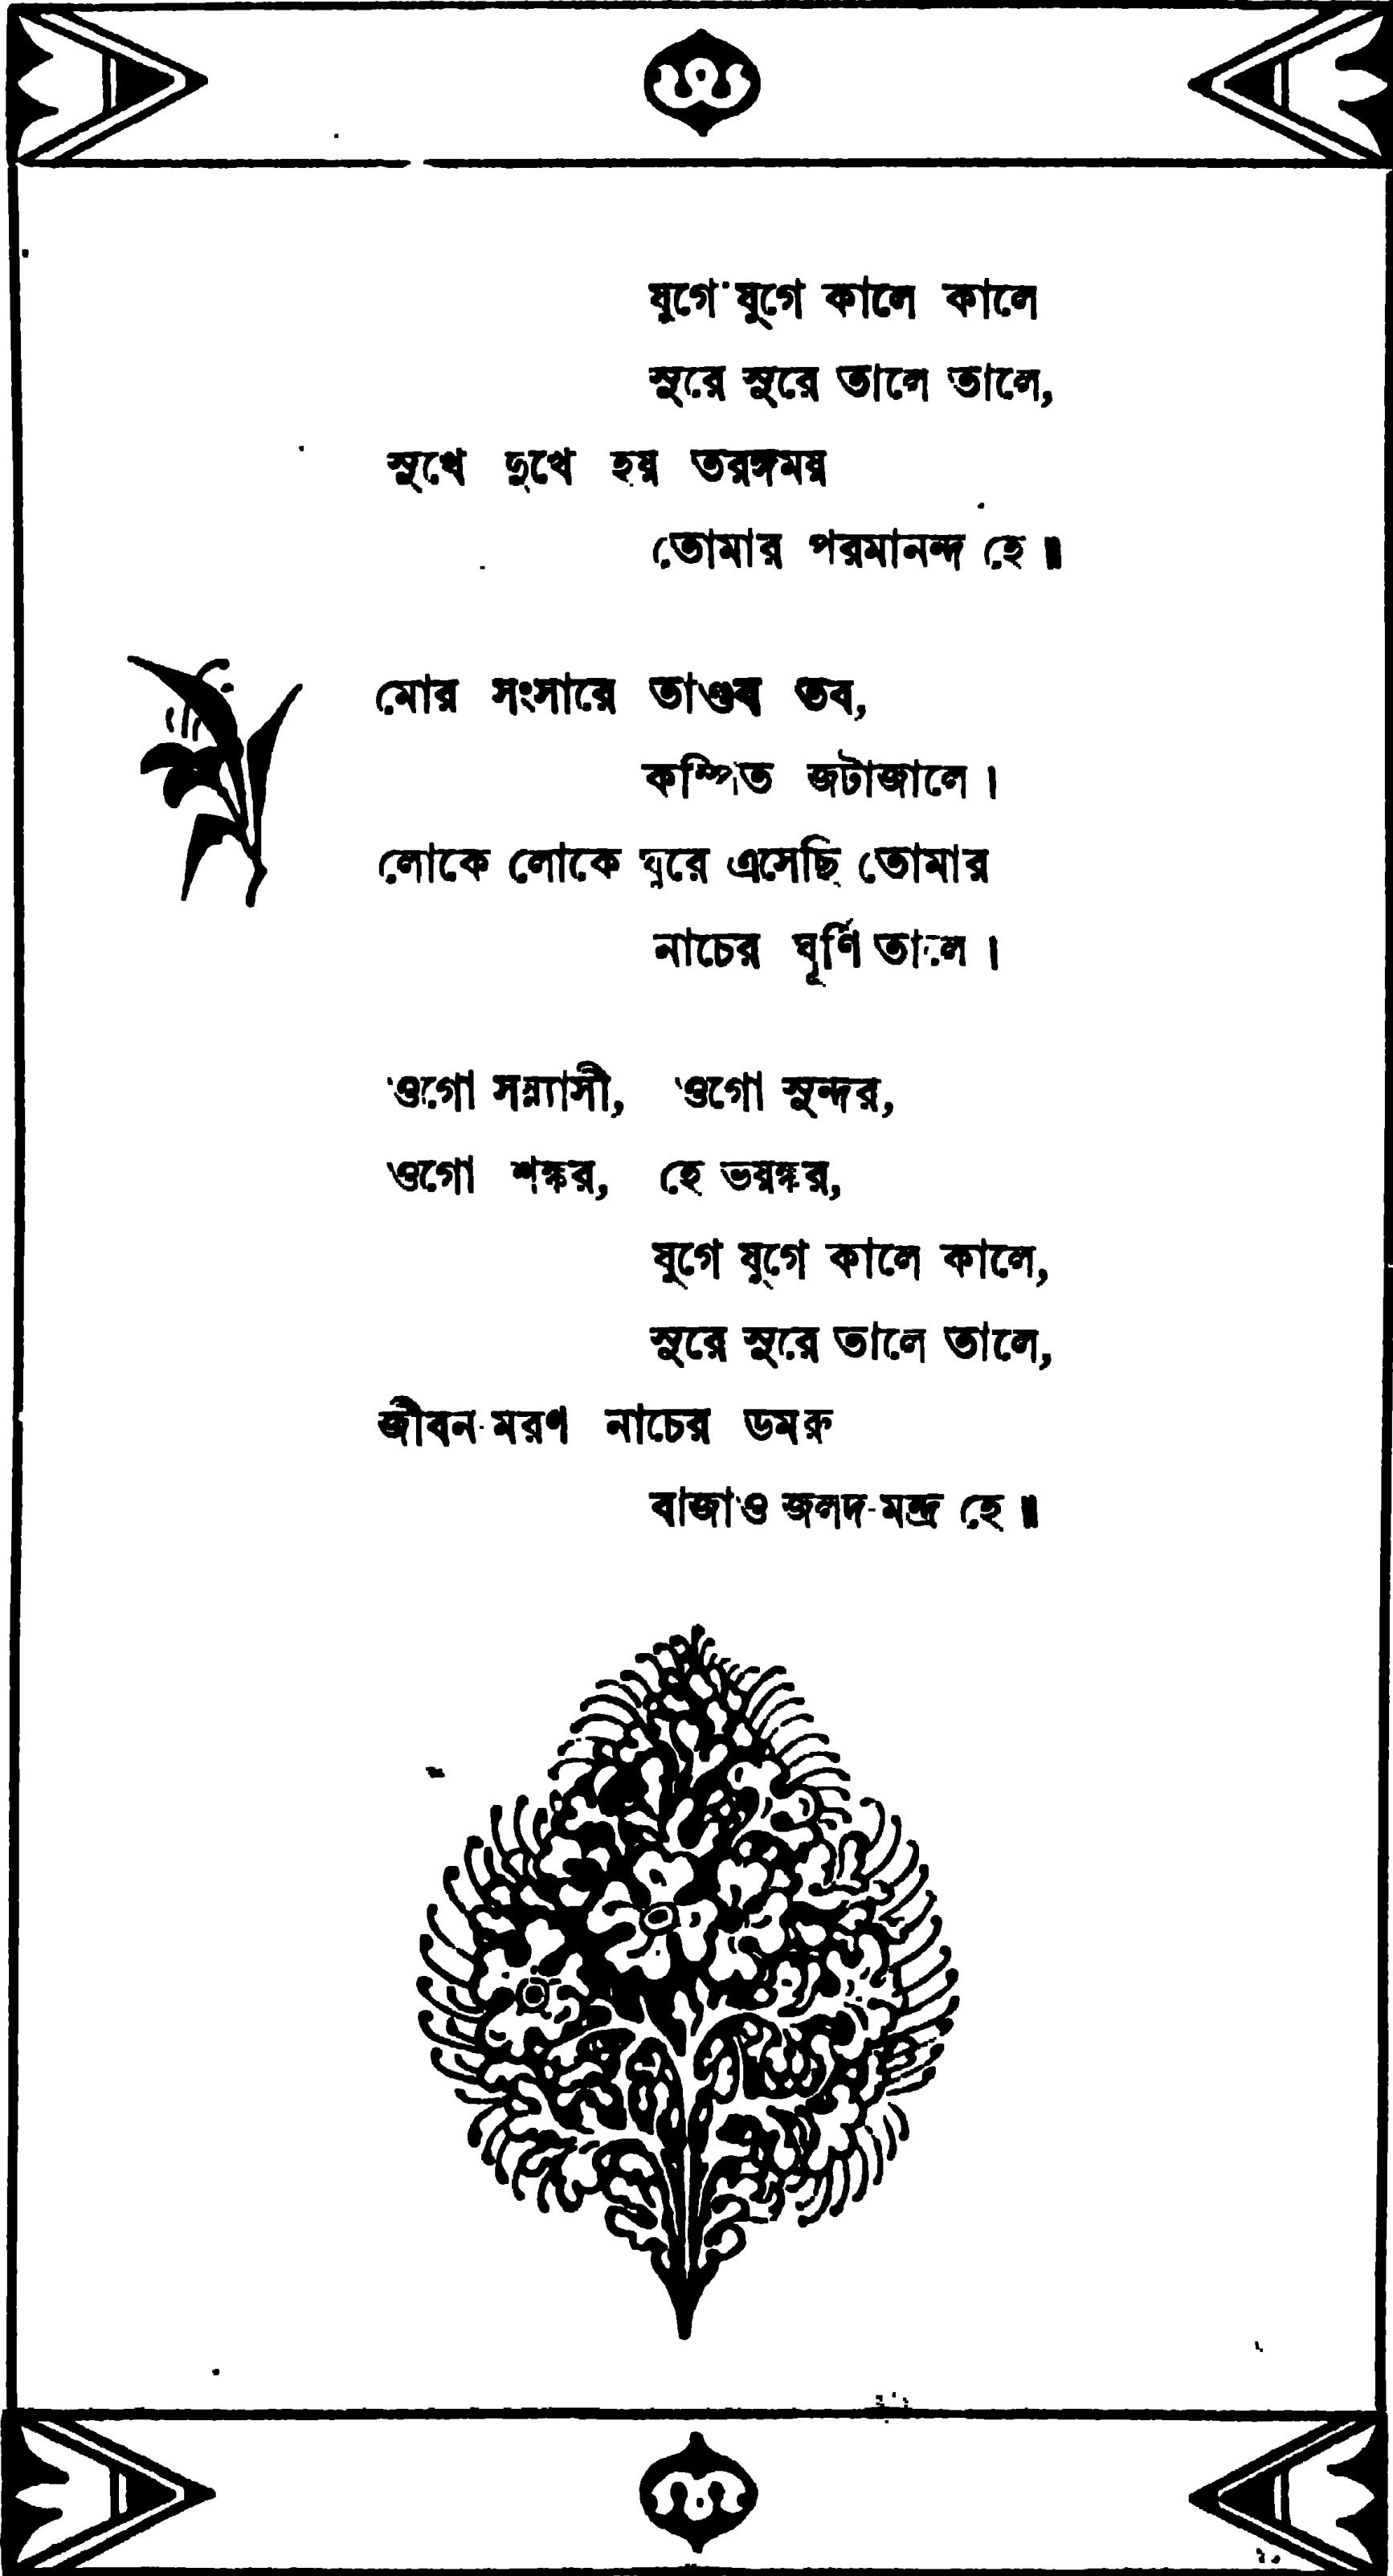 যুগে যুগে কালে কালে
সুরে সুরে তালে তালে,
সুখে দুখে হয় তরঙ্গময়
তোমার পরমানন্দ হে॥
মোর সংসারে তাণ্ডব তব,
কম্পিত জটাজালে।
লোকে লোকে ঘুরে এসেছি তোমার
নাচের ঘূর্ণি তালে।
ওগো সন্ন্যাসী, ওগো সুন্দর,
ওগো শঙ্কর, হে ভয়ঙ্কর,
যুগে যুগে কালে কালে,
সুরে সুরে তালে তালে,
জীবন-মরণ নাচের ডমরু
বাজাও জলদ-মন্দ্র হে॥